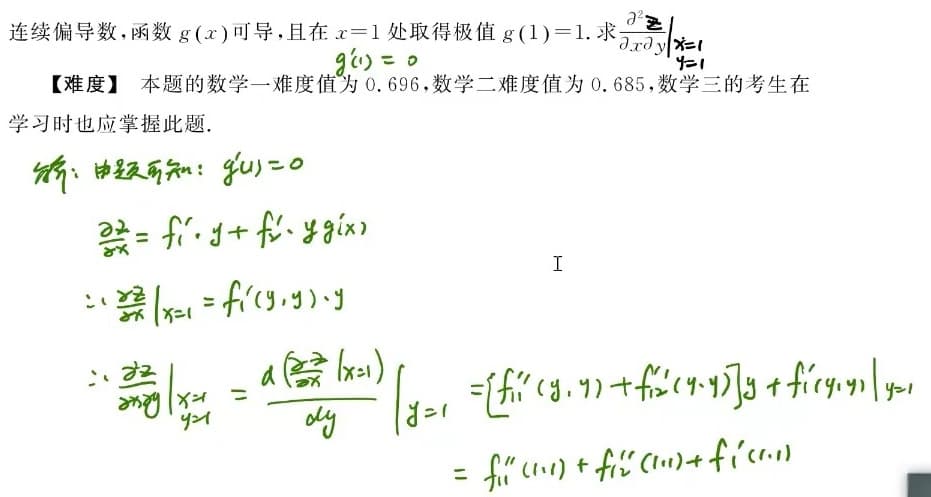 连续偏导数,函数 g(x)可导,且在 x=1 处取得极值 g(1)=1. 求∂²z/∂x∂y|x=1 y=1
g'(1) = 0
【难度】 本题的数学一难度值为 0.696,数学二难度值为 0.685,数学三的考生在
学习时也应掌握此题.
解: 由题可知: g'(1)=0
∂z/∂x = f₁'·y + f₂'·y g'(x)
∴ ∂z/∂x|x=1 = f₁'(y,y)·y
∴ ∂²z/∂x∂y|x=1 y=1 = d(∂z/∂x|x=1)/dy|y=1 = [f₁₁''(y,y) + f₁₂''(y,y)]y + f₁'(y,y)|y=1
= f₁₁''(1,1) + f₁₂''(1,1) + f₁'(1,1)